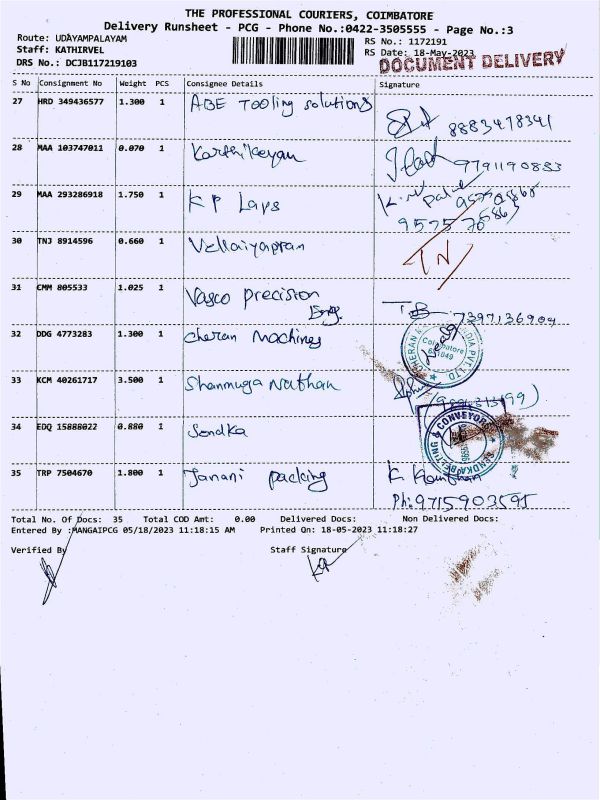 THE PROFESSIONAL COURIERS, COIMBATORE
Delivery Runsheet - PCG - Phone No.:0422-3505555 - Page No.:3
Route: UDAYAMPALAYAM
RS No.: 1172191
Staff: KATHIRVEL
RS Date: 18-May-2023
DRS No.: DCJB117219103
DOCUMENT DELIVERY
S No Consignment No Weight PCS Consignee Details Signature
27 HRD 349436577 1.300 1 ABE Tooling solutions
8883478341
28 MAA 103747011 0.070 1 Karthikeyan
9791190883
29 MAA 293286918 1.750 1 K P Laps
30 TNJ 8914596 0.660 1 Vellaiyappan TN
31 CMM 805533 1.025 1 Vasco precision
Eng. 7397136904
32 DDG 4773283 1.300 1 cheran machines
Coimbatore
641049
33 KCM 40261717 3.500 1 Shanmuga Nathan
34 EDQ 15888022 0.880 1 Sendka
35 TRP 7504670 1.800 1 Janani packing K.
Ph: 9715903595
Total No. Of Docs: 35 Total COD Amt: 0.00 Delivered Docs: Non Delivered Docs:
Entered By :MANGAIPCG 05/18/2023 11:18:15 AM Printed On: 18-05-2023 11:18:27
Verified By Staff Signature